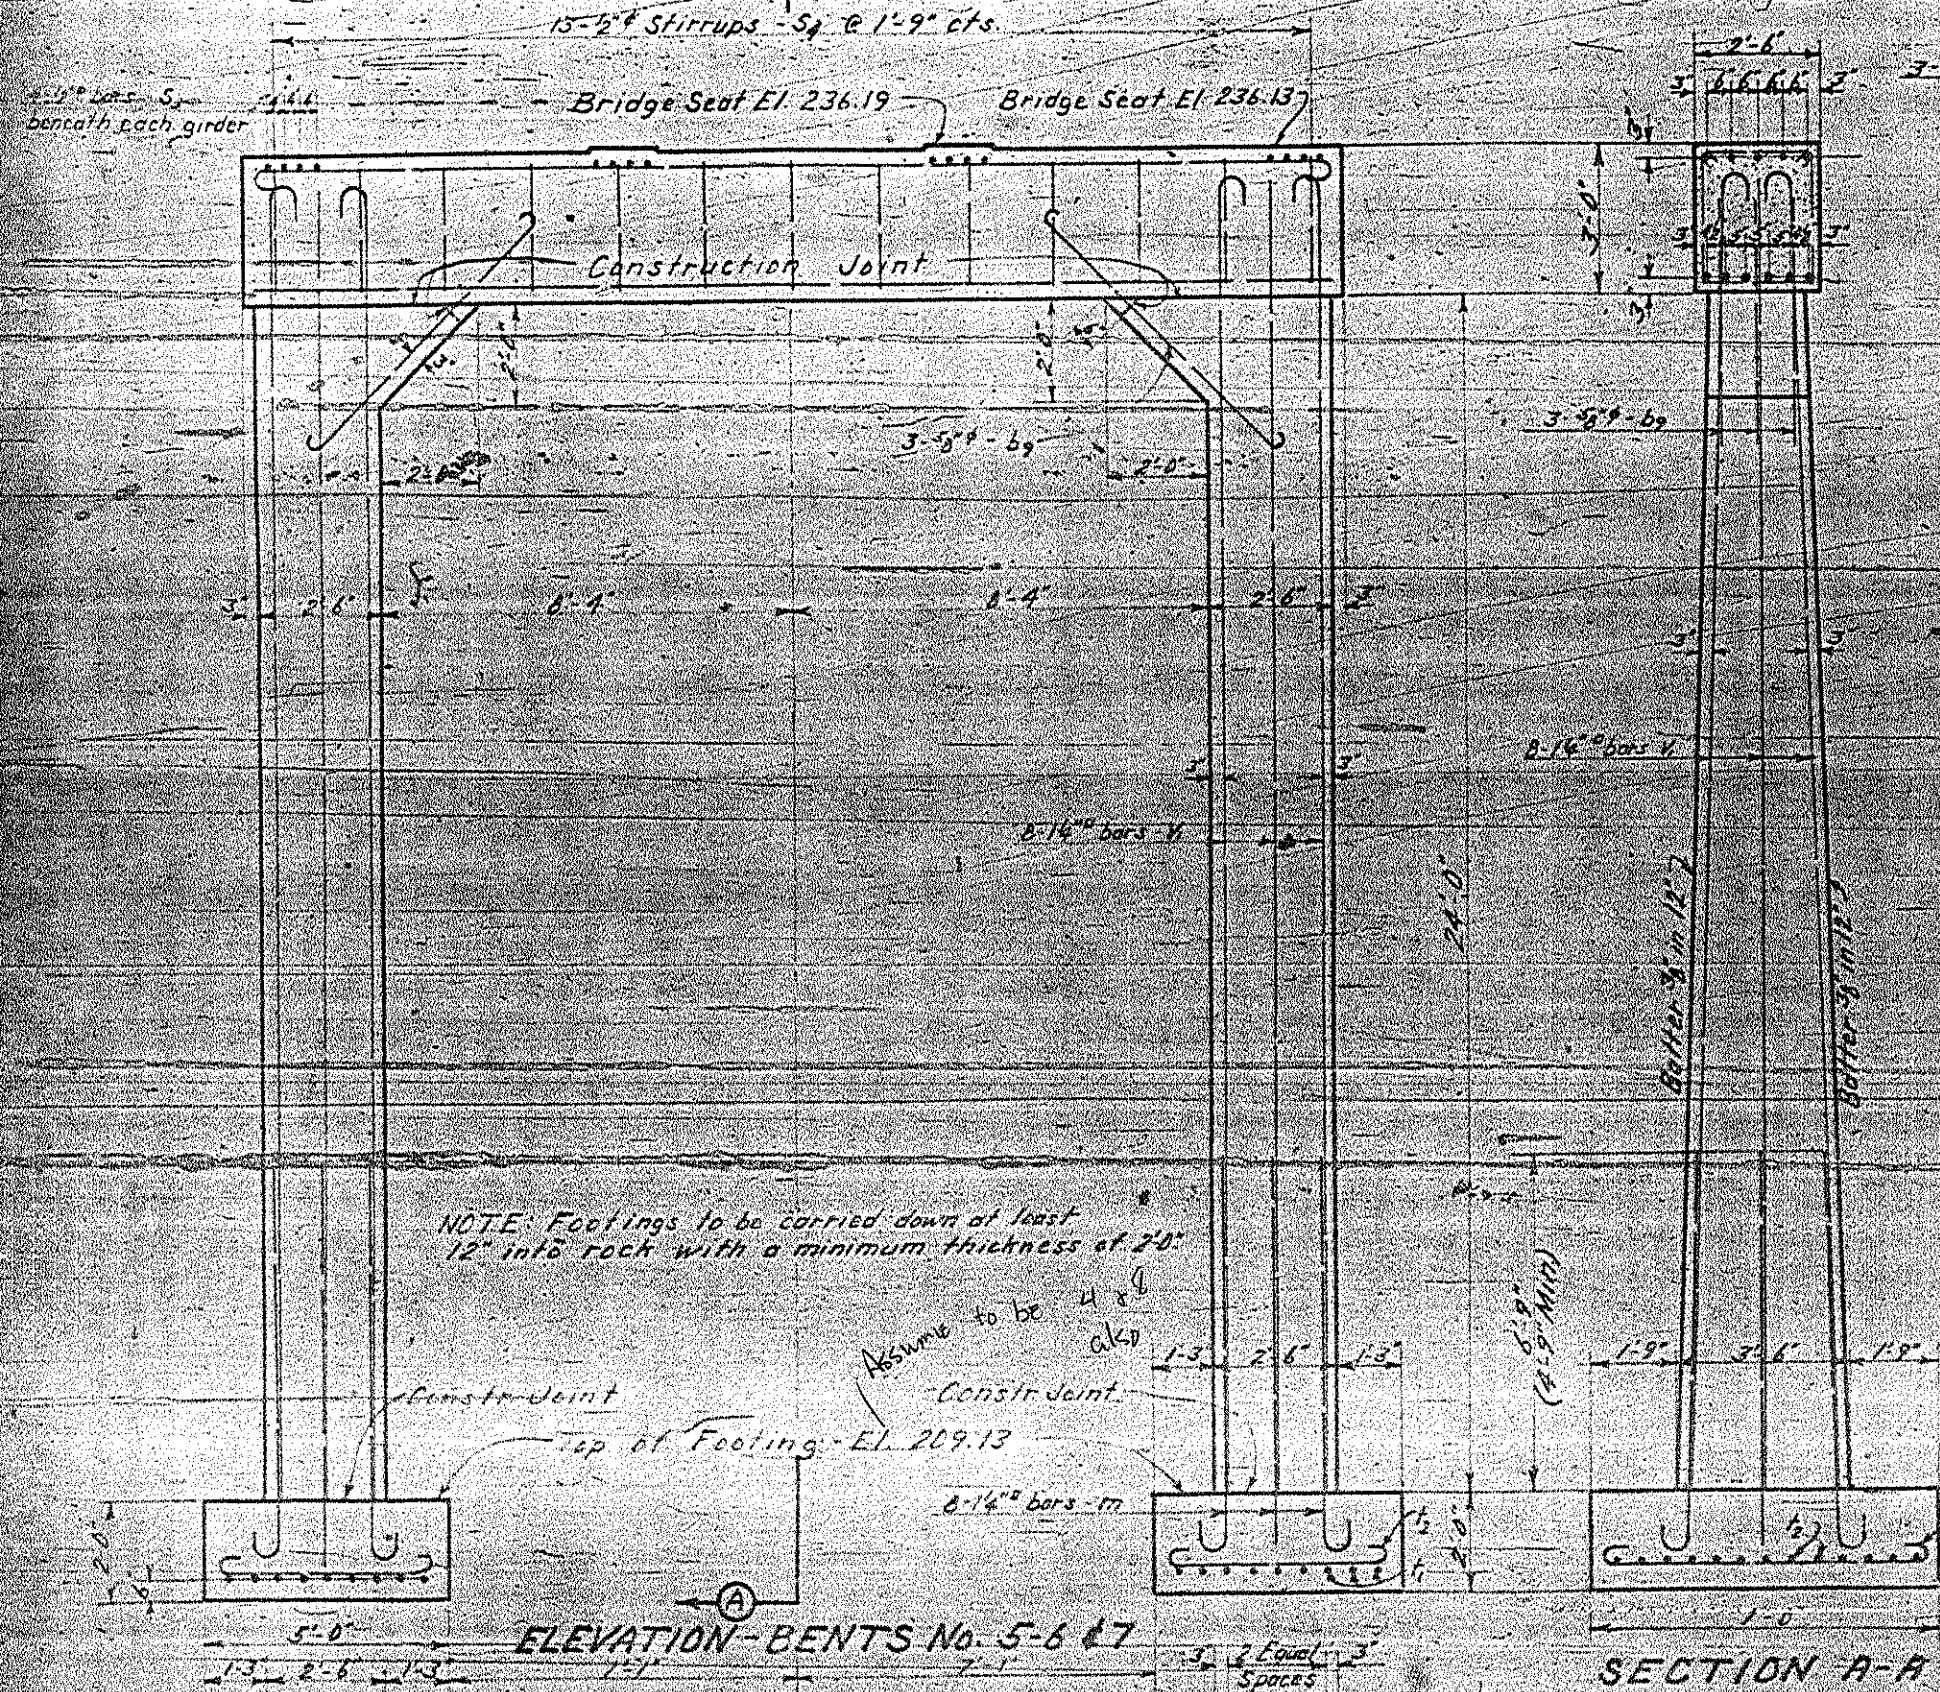 15-½"φ Stirrups - S4 @ 1'-9" cts.
2'-6"
3" 6" 6" 6" 6" 3"
3-
beneath each girder
Bridge Seat El. 236.19
Bridge Seat El. 236.13
3"
3'-0"
3"
3"
3"
Construction Joint
2'-0"
2'-0"
3"
3-⅝"φ - b9
3-⅝"φ - b9
2'-0"
3" 2'-6" 8'-4" 8'-4" 2'-6" 3"
3" 3"
3" 3"
8-1¼"▫ bars V1
8-1¼"▫ bars V1
24'-0"
Batter ⅜" in 12"
Batter ⅜" in 12"
NOTE: Footings to be carried down at least
12" into rock with a minimum thickness of 2'-0"
Assume to be 4 & 8
also
(4'-9" Min)
1'-3" 2'-6" 1'-3"
1'-9" 3'-6" 1'-9"
Constr. Joint
Constr. Joint
Top of Footing - El. 209.13
8-1¼"▫ bars - m
t2
t1
t2
2'-0"
6"
2'-0"
A
5'-0"
ELEVATION - BENTS No. 5-6 & 7
1'-3" 2'-6" 1'-3" 7'-1" 7'-1"
3" 2 Equal 3"
Spaces
SECTION A-A